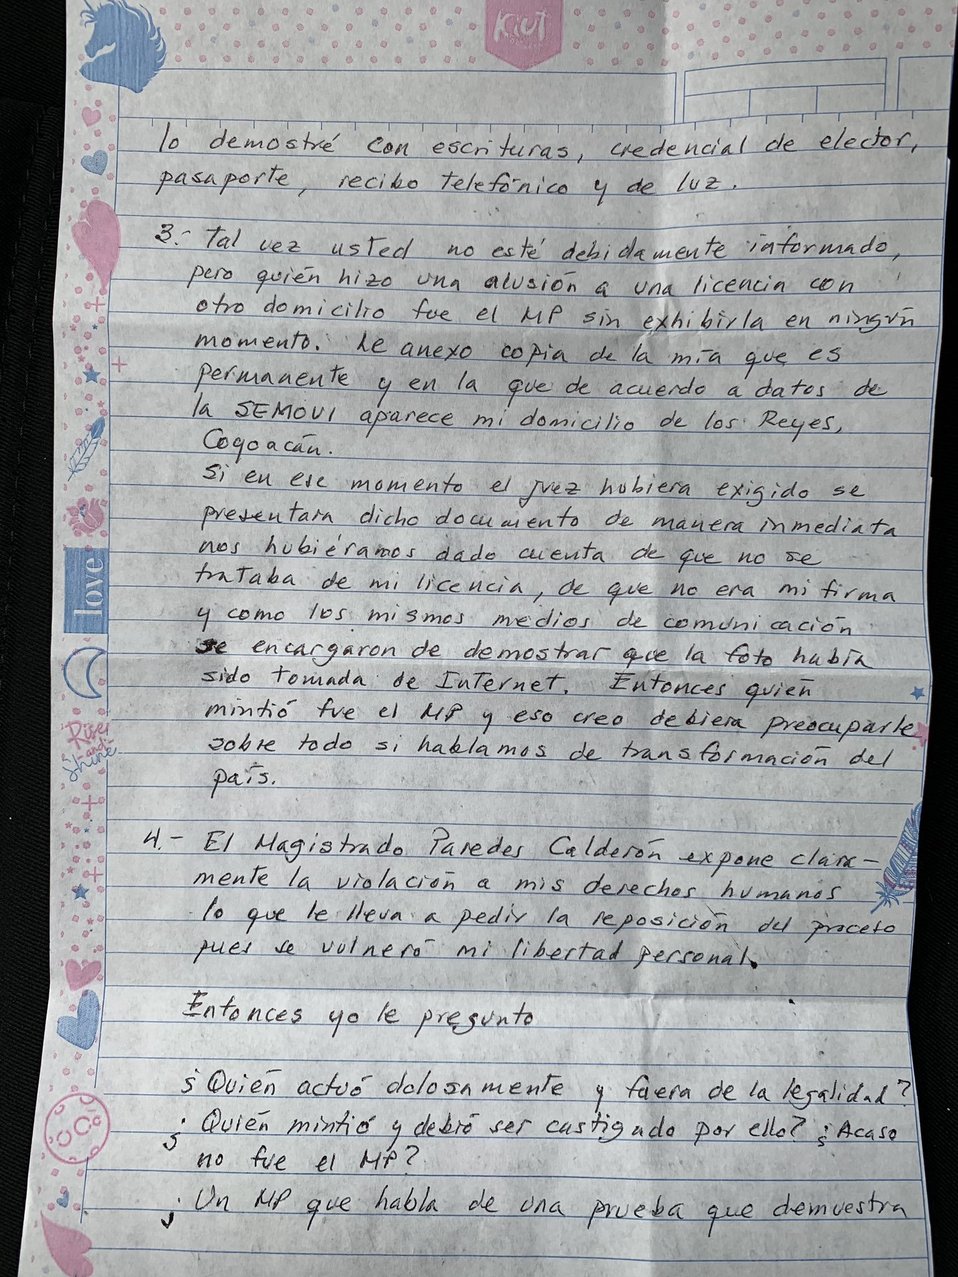 Kiut
lo demostré con escrituras, credencial de elector,
pasaporte, recibo telefónico y de luz.
3.- Tal vez usted no esté debidamente informado,
pero quién hizo una alusión a una licencia con
otro domicilio fue el MP sin exhibirla en ningún
momento. Le anexo copia de la mía que es
permanente y en la que de acuerdo a datos de
la SEMOVI aparece mi domicilio de los Reyes,
Coyoacán.
Si en ese momento el juez hubiera exigido se
presentara dicho documento de manera inmediata
nos hubiéramos dado cuenta de que no se
trataba de mi licencia, de que no era mi firma
y como los mismos medios de comunicación
se encargaron de demostrar que la foto había
sido tomada de Internet. Entonces quién
mintió fue el MP y eso creo debiera preocuparle
sobre todo si hablamos de transformación del
país.
4.- El Magistrado Paredes Calderón expone clara-
mente la violación a mis derechos humanos
lo que le lleva a pedir la reposición del proceso
pues se vulneró mi libertad personal.
Entonces yo le pregunto
¿Quién actuó dolosamente y fuera de la legalidad?
¿Quién mintió y debió ser castigado por ello? ¿Acaso
no fue el MP?
¿Un MP que habla de una prueba que demuestra
love
Rise
and
shine